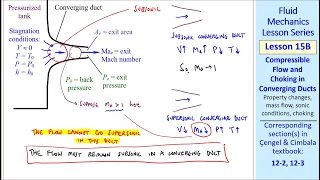 Pressurized
tank
Converging duct
Stagnation
conditions:
V ≈ 0
T = T₀
P = P₀
h = h₀
Aₑ = exit area
Maₑ = exit
Mach number
Pₑ = exit
pressure
P_b = back
pressure
SUPPOSE Ma > 1 here
SUBSONIC
SUBSONIC CONVERGING DUCT
V↑ Ma↑ P↓ T↓
So, Ma → 1
SUPERSONIC CONVERGING DUCT
V↓ Ma↓ P↑ T↑
THE FLOW CANNOT GO SUPERSONIC
IN THE DUCT
THE FLOW MUST REMAIN SUBSONIC IN A CONVERGING DUCT
Fluid
Mechanics
Lesson Series
Lesson 15B
Compressible
Flow and
Choking in
Converging Ducts
Property changes,
mass flow, sonic
conditions, choking
Corresponding
section(s) in
Çengel & Cimbala
textbook:
12-2, 12-3